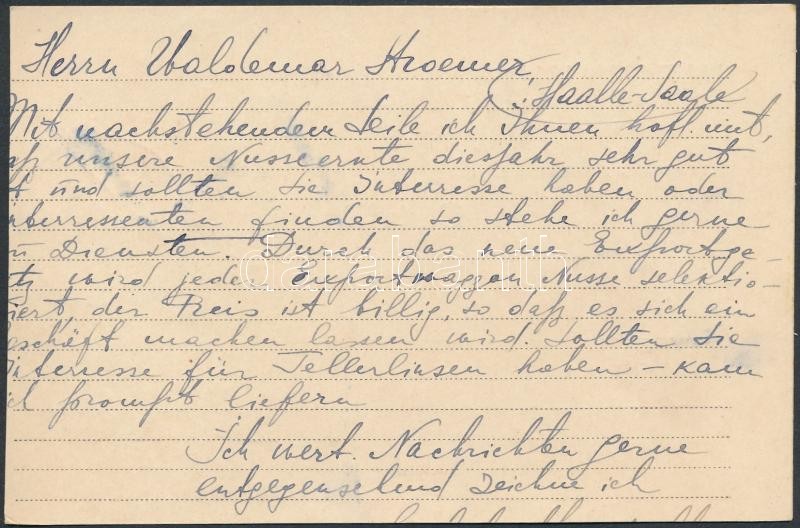 Herrn Waldemar Hroemer,
Haalle-Saale
Mit nachstehendem teile ich Ihnen höfl. mit,
aß unsere Nusseernte diesjahr sehr gut
t und sollten Sie Interresse haben oder
nterressenten finden so stehe ich gerne
zu Diensten. Durch das neue Exportge-
etz wird jeder Exportwaggon Nusse selektio-
niert, der Preis ist billig, so daß es sich ein
eschäft machen lassen wird. Sollten Sie
Interresse für Tellerlinsen haben - kann
ich prompt liefern
Ich wert. Nachrichten gerne
entgegensehend zeichne ich